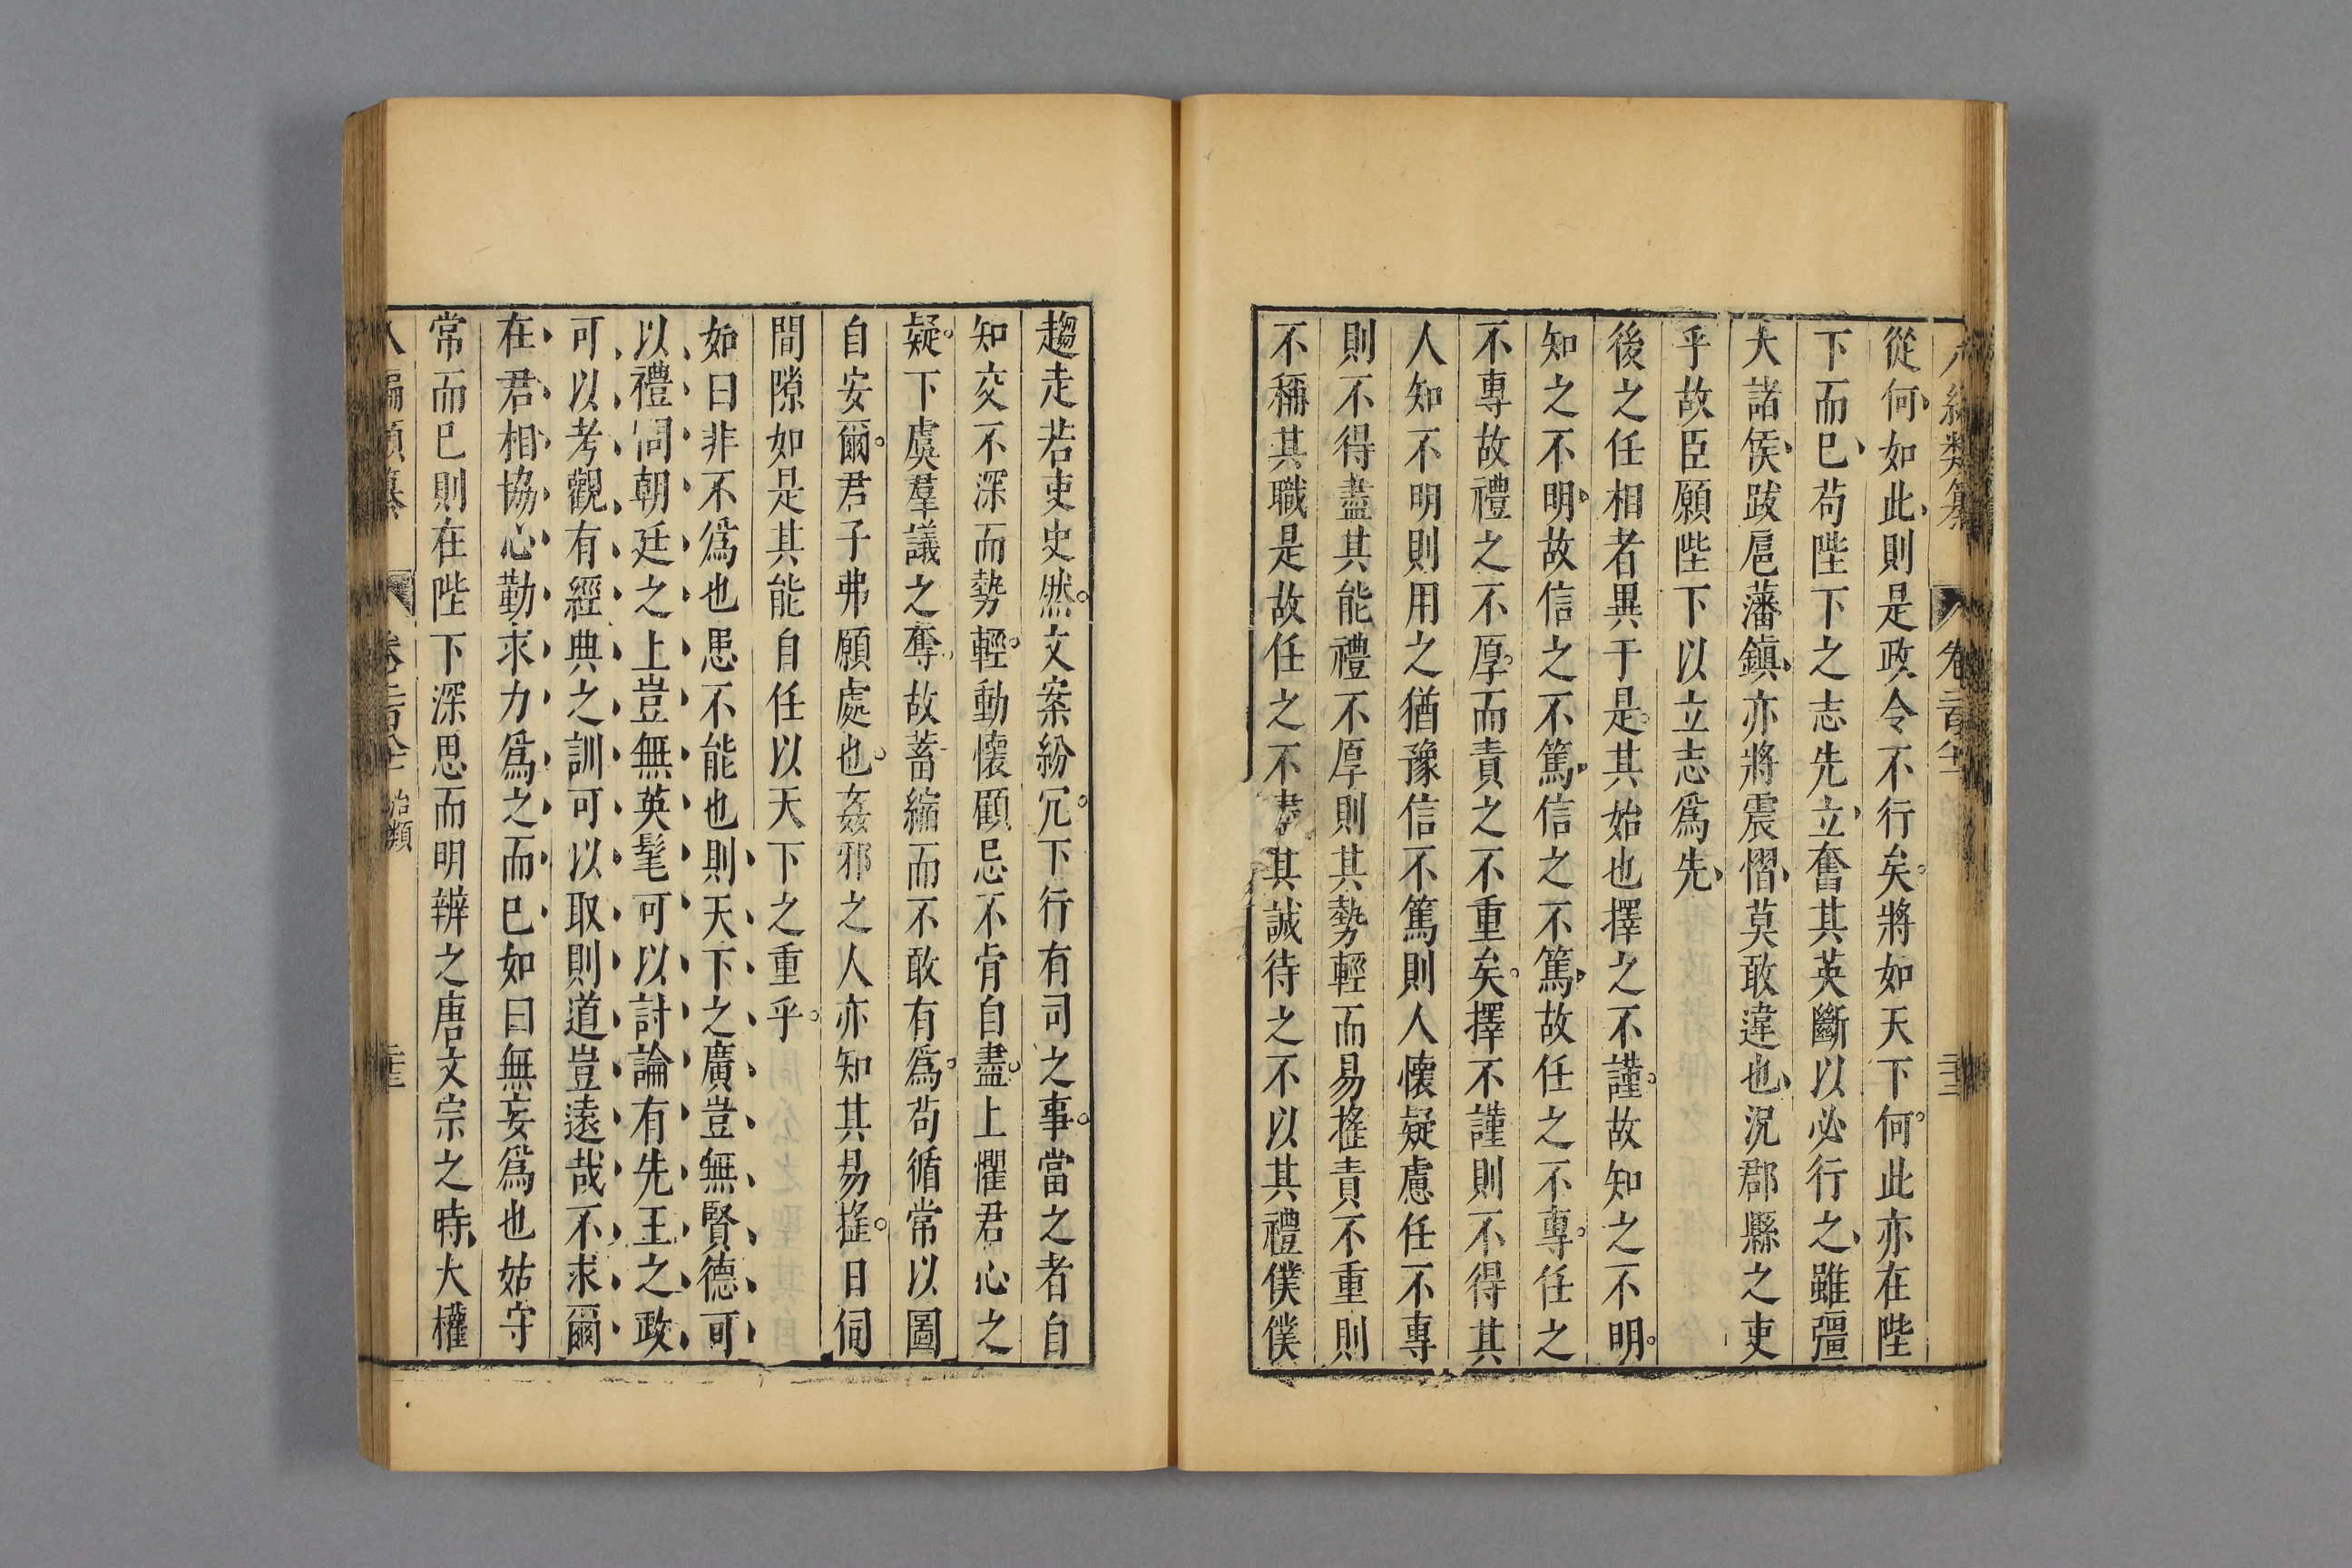 編類纂
從何如此則是政令不行矣將如天下何此亦在陛
下而已苟陛下之志先立奮其英斷以必行之雖彊
大諸侯跋扈藩鎮亦將震慴莫敢違也況郡縣之吏
乎故臣願陛下以立志爲先
後之任相者異于是其始也擇之不謹故知之不明
知之不明故信之不篤信之不篤故任之不專任之
不專故禮之不厚而責之不重矣擇不謹則不得其
人知不明則用之猶豫信不篤則人懷疑慮任不專
則不得盡其能禮不厚則其勢輕而易搖責不重則
不稱其職是故任之不盡其誠待之不以其禮僕僕
趨走若吏史然文案紛冗下行有司之事當之者自
知交不深而勢輕動懷顧忌不肯自盡上懼君心之
疑下虞羣議之奪故蓄縮而不敢有爲苟循常以圖
自安爾君子弗願處也姦邪之人亦知其易搖日伺
間隙如是其能自任以天下之重乎
如曰非不爲也患不能也則天下之廣豈無賢德可
以禮伺朝廷之上豈無英髦可以討論有先王之政
可以考觀有經典之訓可以取則道豈遠哉不求爾
在君相協心勤求力爲之而已如曰無妄爲也姑守
常而已則在陛下深思而明辨之唐文宗之時大權
八編類纂 治類